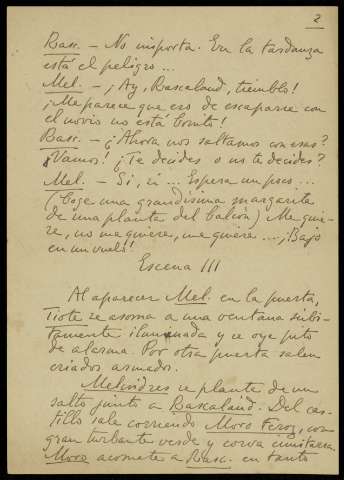 2
Basc. - No importa. En la tardanza
está el peligro...
Mel. - ¡Ay, Bascalaud, tiemblo!
¡Me parece que eso de escaparse con
el novio no está bonito!
Basc. - ¿Ahora nos saltamos con esas?
¡Vamos! ¿Te decides o no te decides?
Mel. - Si, si... Espera un poco...
(Coge una grandísima margarita
de una planta del balcón) Me quie-
re, no me quiere, me quiere...¡Bajo
en un vuelo!
Escena III
Al aparecer Mel. en la puerta,
Tiote se asoma a una ventana subi-
tamente iluminada y se oye pito
de alarma. Por otra puerta salen
criados armados.
Melindres se planta de un
salto junto a Bascalaud. Del cas-
tillo sale corriendo Moro Feroz, con
gran turbante verde y corva cimitarra.
Moro acomete a Basc. en tanto